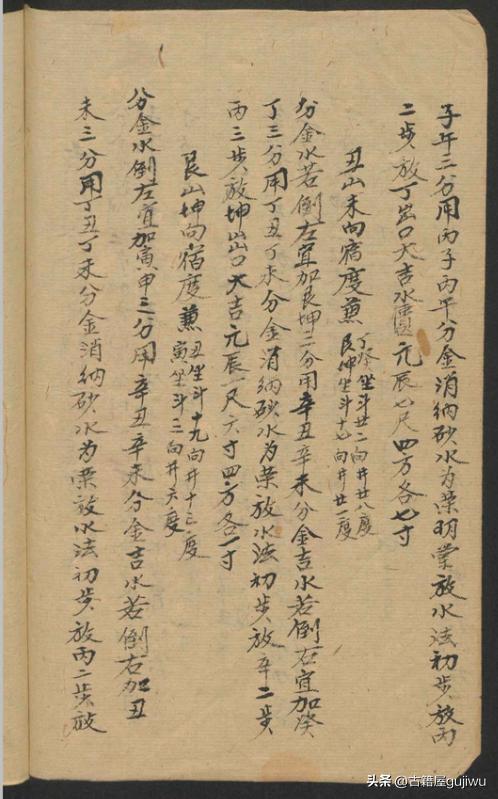 子午三分用丙子丙午分金消納砂水为荣明堂放水法初步放丙
二步放丁出口大吉水圓元辰七尺四方各七寸
丑山未向宿度兼丁癸坐斗廿二向井廿八度
艮坤坐斗十七向井廿一度
分金水若倒左宜加艮坤二分用辛丑辛未分金吉水若倒右宜加癸
丁三分用丁丑丁未分金消納砂水为荣放水法初步放辛二步
丙三步放坤山出口大吉元辰一尺六寸四方各一寸
艮山坤向宿度兼丑坐斗十九向井十三度
寅坐斗三向井六度
分金水倒左宜加寅申三分用辛丑辛未分金吉水若倒右加丑
未三分用丁丑丁未分金消納砂水为荣放水法初步放丙二步放
头条@古籍屋gujiwu